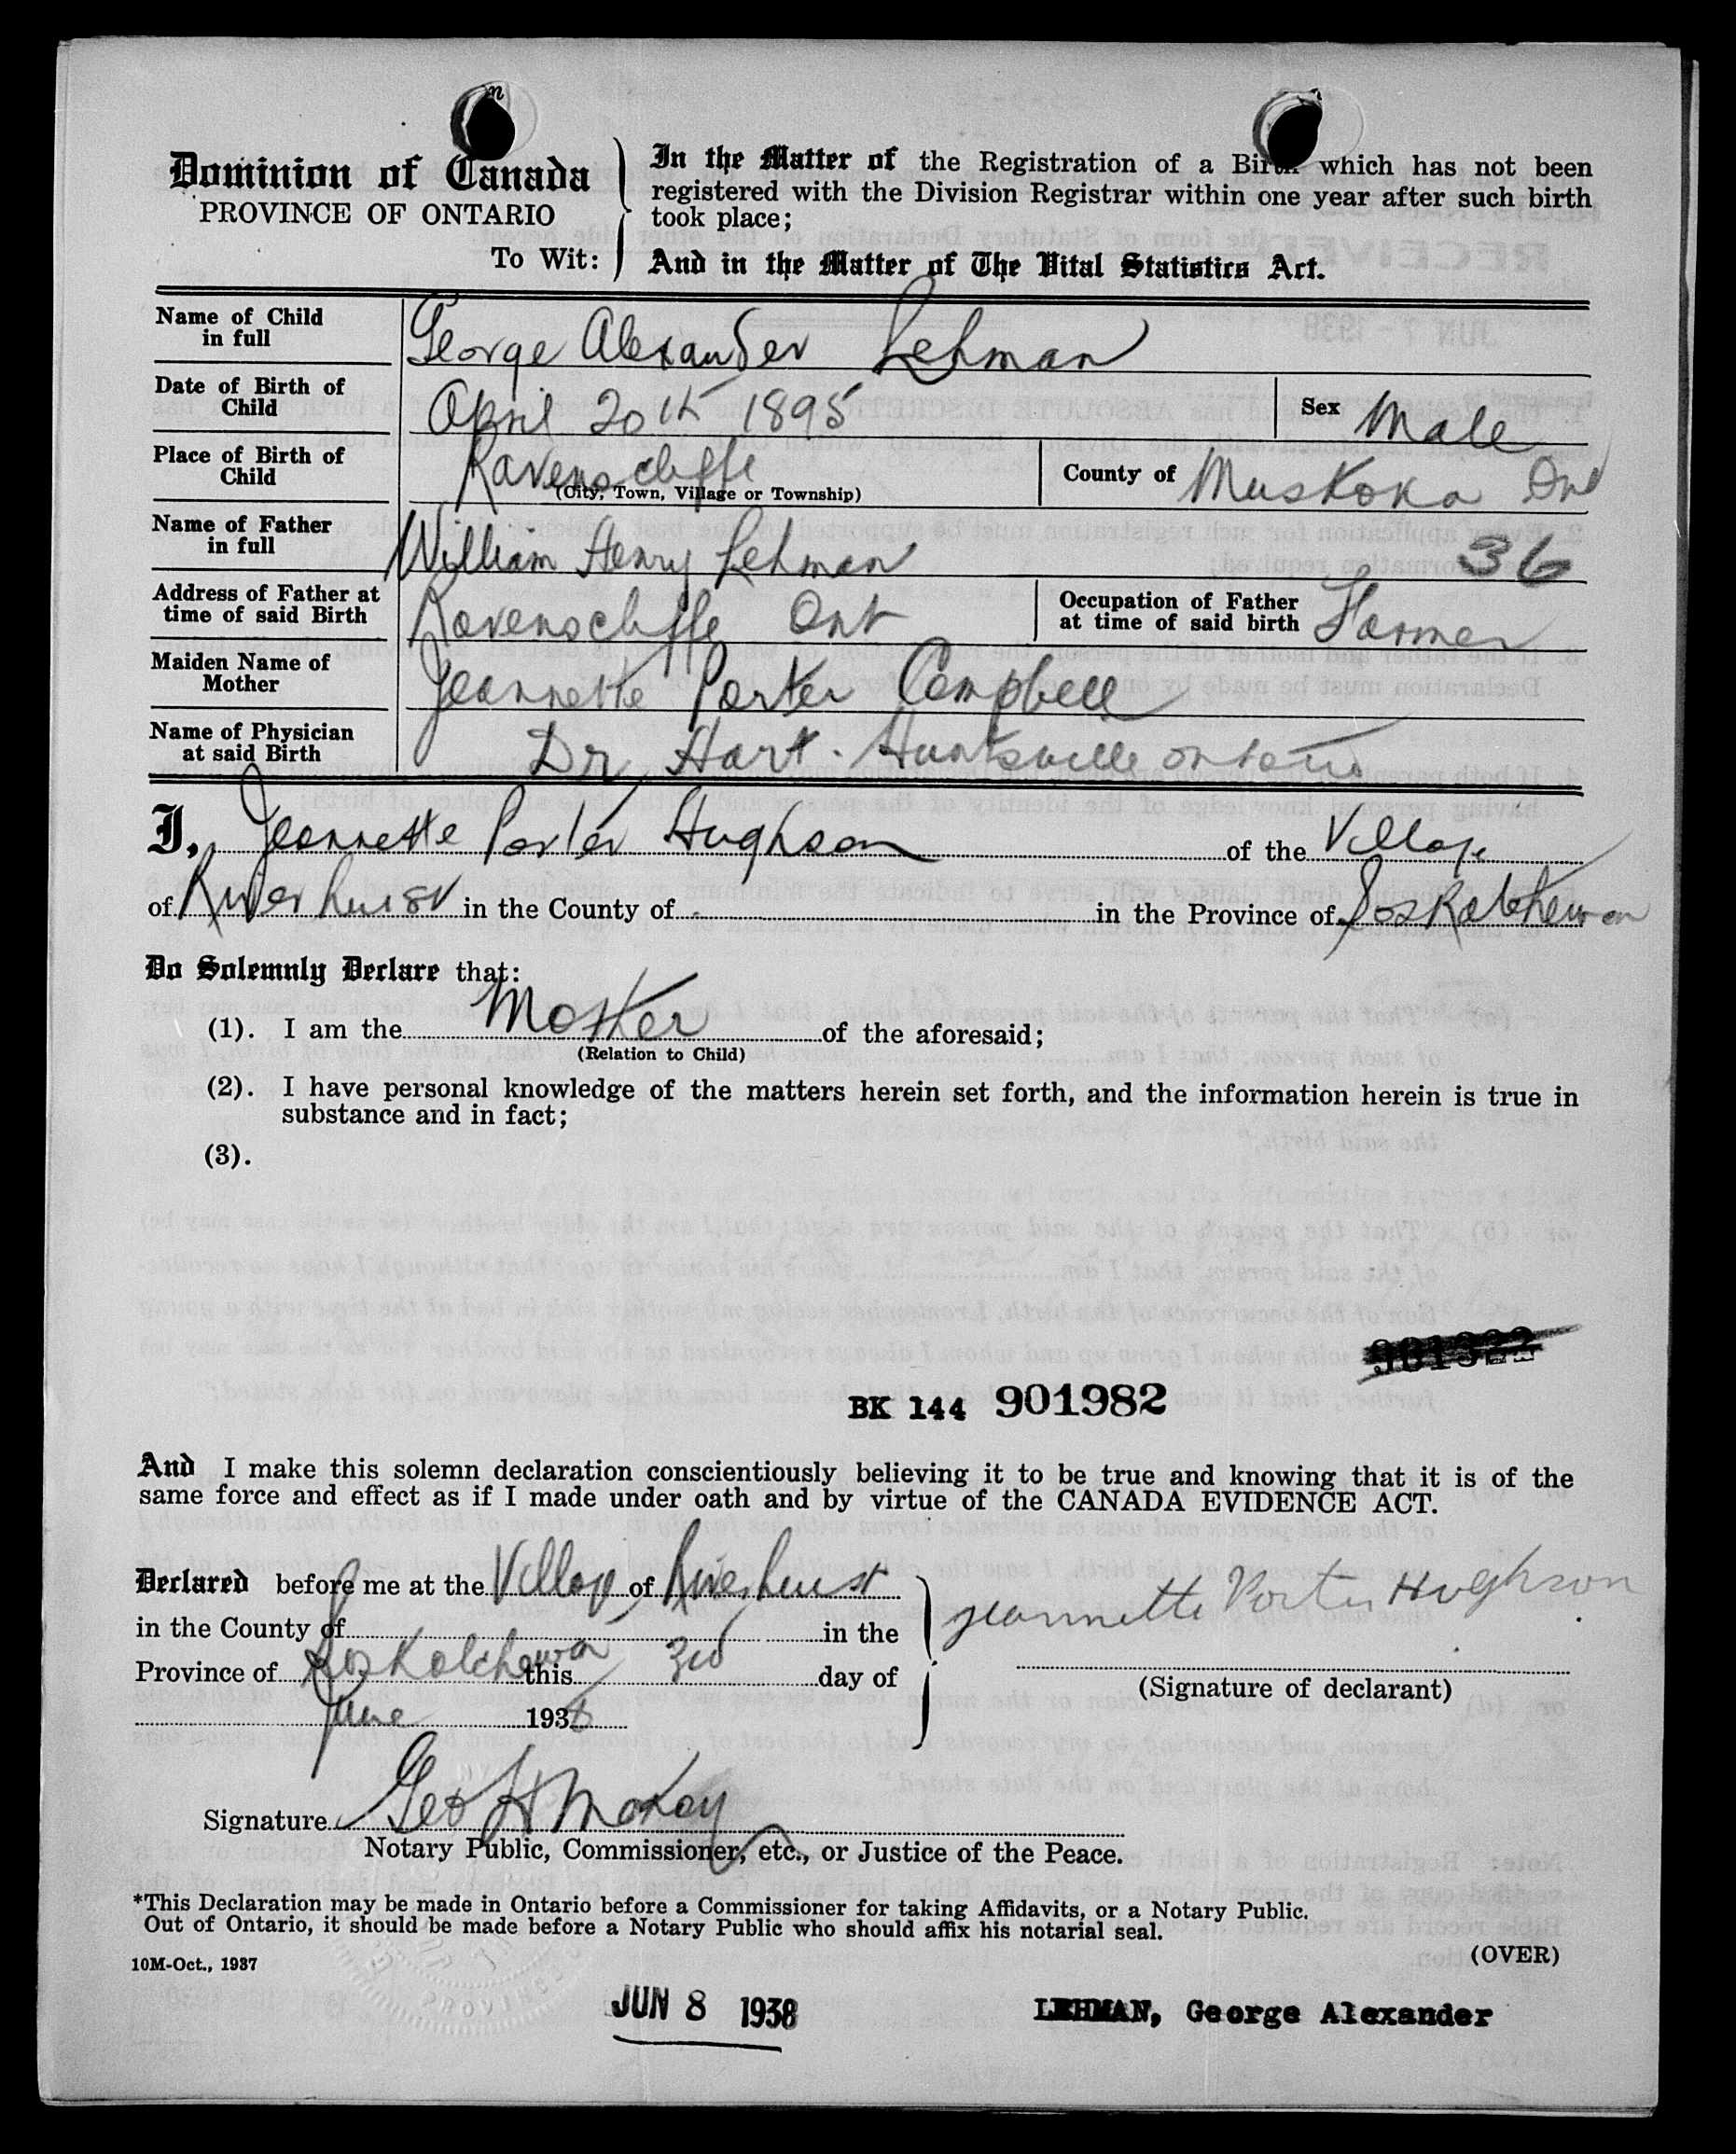 Dominion of Canada
PROVINCE OF ONTARIO
To Wit:
In the Matter of the Registration of a Birth which has not been
registered with the Division Registrar within one year after such birth
took place;
And in the Matter of The Vital Statistics Act.
Name of Child
in full
George Alexander Lehman
Date of Birth of
Child
April 20th 1895
Sex Male
Place of Birth of
Child
Ravenscliffe
(City, Town, Village or Township)
County of Muskoka Ont
Name of Father
in full
William Henry Lehman
36
Address of Father at
time of said Birth
Ravenscliffe Ont
Occupation of Father
at time of said birth
Farmer
Maiden Name of
Mother
Jeannette Porter Campbell
Name of Physician
at said Birth
Dr Hart. Huntsville Ontario
I, Jeannette Porter Hughson of the Village
of Riverhurst in the County of in the Province of Saskatchewan
Do Solemnly Declare that:
(1). I am the Mother of the aforesaid;
(Relation to Child)
(2). I have personal knowledge of the matters herein set forth, and the information herein is true in
substance and in fact;
(3).
BK 144 901982
And I make this solemn declaration conscientiously believing it to be true and knowing that it is of the
same force and effect as if I made under oath and by virtue of the CANADA EVIDENCE ACT.
Declared before me at the Village of Riverhurst
in the County of in the
Province of Saskatchewan this 3rd day of
June 1938
Jeannette Porter Hughson
(Signature of declarant)
Signature Geo H McKay
Notary Public, Commissioner, etc., or Justice of the Peace.
*This Declaration may be made in Ontario before a Commissioner for taking Affidavits, or a Notary Public.
Out of Ontario, it should be made before a Notary Public who should affix his notarial seal.
10M-Oct., 1937
(OVER)
JUN 8 1938
LEHMAN, George Alexander